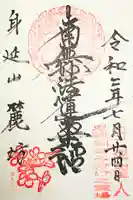 令和二年七月廿四日
南無妙法蓮華経
身延山 麓坊